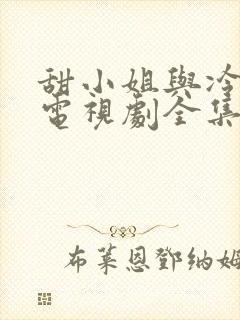 甜小姐與冷
電視劇全集
布萊恩鄧納姆